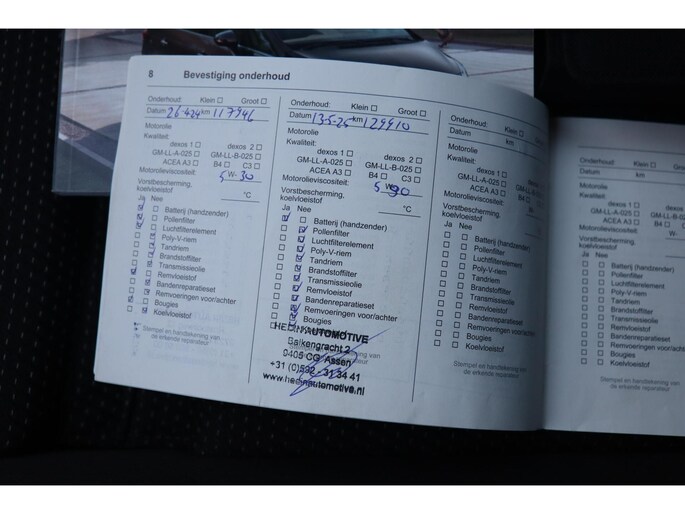 8 Bevestiging onderhoud
Onderhoud: Klein ☐ Groot ☐
Datum 26-4-24 km 117946
Motorolie
Kwaliteit:
dexos 1 ☐ dexos 2 ☐
GM-LL-A-025 ☐ GM-LL-B-025 ☐
ACEA A3 ☐ B4 ☐ C3 ☐
Motorolieviscositeit: 5 W- 30
Vorstbescherming,
koelvloeistof °C
Ja Nee
Batterij (handzender)
Pollenfilter
Luchtfilterelement
Poly-V-riem
Tandriem
Brandstoffilter
Transmissieolie
Remvloeistof
Bandenreparatieset
Remvoeringen voor/achter
Bougies
Koelvloeistof
Stempel en handtekening van
de erkende reparateur
Onderhoud: Klein ☐ Groot ☐
Datum 13-5-25 km 129910
Motorolie
Kwaliteit:
dexos 1 ☐ dexos 2 ☐
GM-LL-A-025 ☐ GM-LL-B-025 ☐
ACEA A3 ☐ B4 ☐ C3 ☐
Motorolieviscositeit: 5 W- 30
Vorstbescherming,
koelvloeistof °C
Ja Nee
Batterij (handzender)
Pollenfilter
Luchtfilterelement
Poly-V-riem
Tandriem
Brandstoffilter
Transmissieolie
Remvloeistof
Bandenreparatieset
Remvoeringen voor/achter
Bougies
AUTOMOTIVE
Balkengracht 2
9405 CG Assen
+31 (0)592 - 31 34 41
www.hedinautomotive.nl
Onderhoud: Klein ☐
Datum
Motorolie
Kwaliteit:
dexos 1 ☐
GM-LL-A-025 ☐
ACEA A3 ☐
Motorolieviscositeit:
Vorstbescherming,
koelvloeistof
Ja Nee
Batterij (handzender)
Pollenfilter
Luchtfilterelement
Poly-V-riem
Tandriem
Brandstoffilter
Transmissieolie
Remvloeistof
Bandenreparatieset
Remvoeringen
Bougies
Koelvloeistof
Stempel en
de erkende reparateur
Onderhoud: Klein ☐
Datum km
Motorolie
Kwaliteit:
dexos 1 ☐
GM-LL-A-025 ☐
ACEA A3 ☐
Motorolieviscositeit: W-
Vorstbescherming,
koelvloeistof
Ja Nee
Batterij (handzender)
Pollenfilter
Luchtfilterelement
Poly-V-riem
Tandriem
Brandstoffilter
Transmissieolie
Remvloeistof
Bandenreparatieset
Remvoeringen voor/achter
Bougies
Koelvloeistof
Stempel en handtekening van
de erkende reparateur